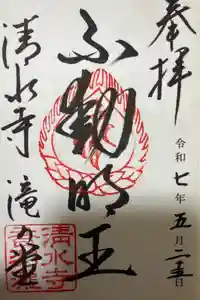 奉拝
令和七年五月二十五日
不動明王
清水寺 滝の堂
清水寺